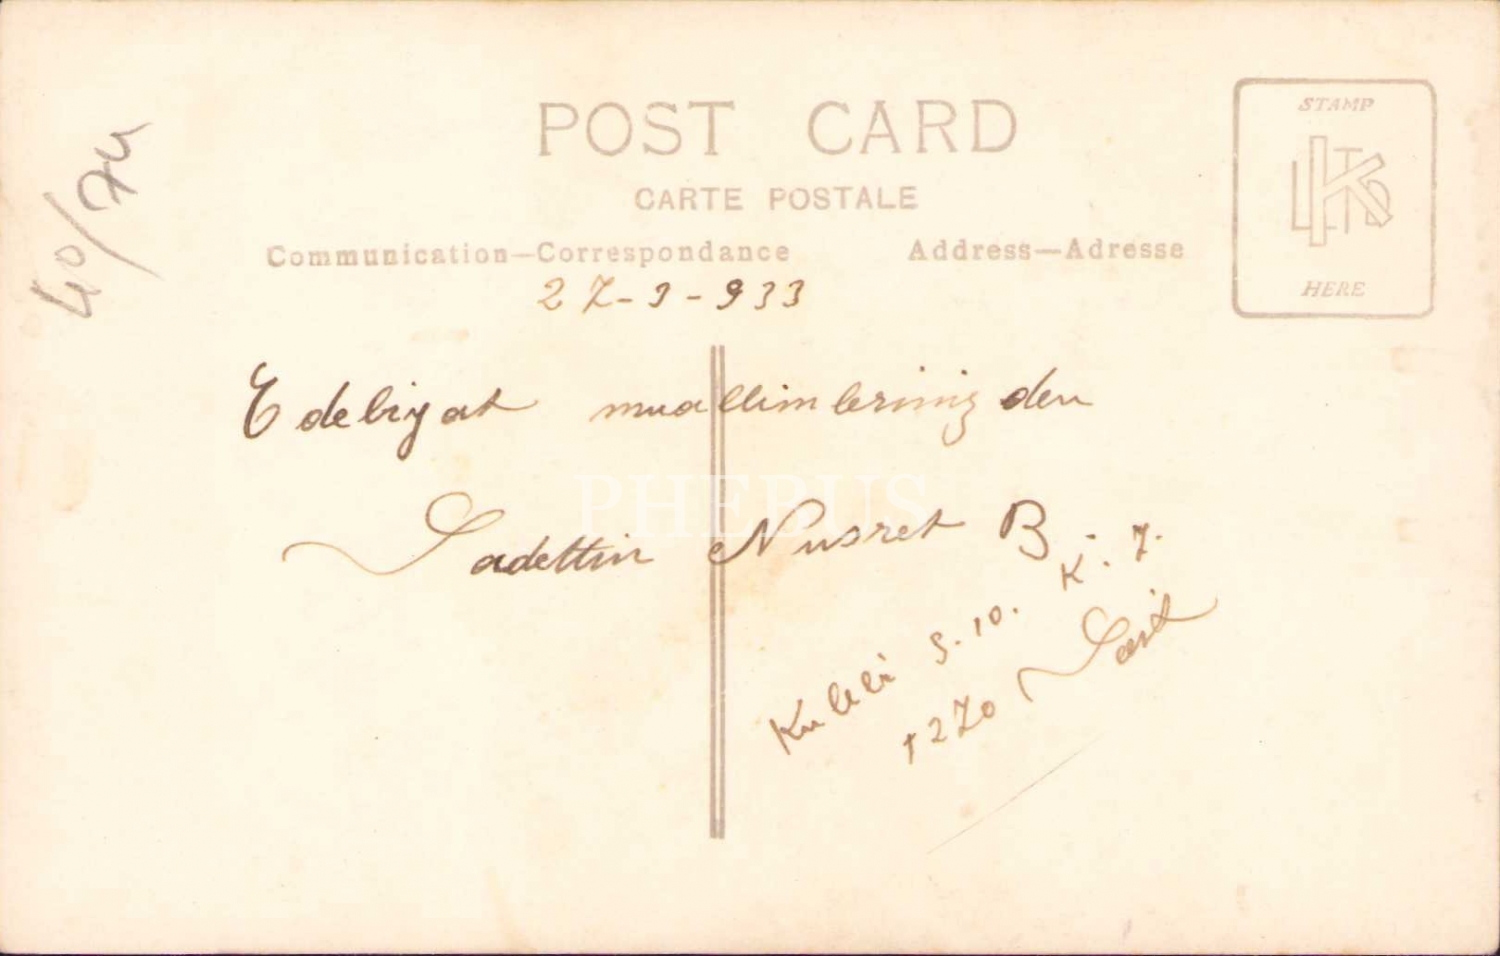 POST CARD
CARTE POSTALE
Communication—Correspondance
Address—Adresse
STAMP
K LTD
HERE
27-9-933
Edebiyat muallimlerinizden
Sadettin Nusret B.
Kuleli S.10. K.7.
1270 Sait
40/74
PHEBUS